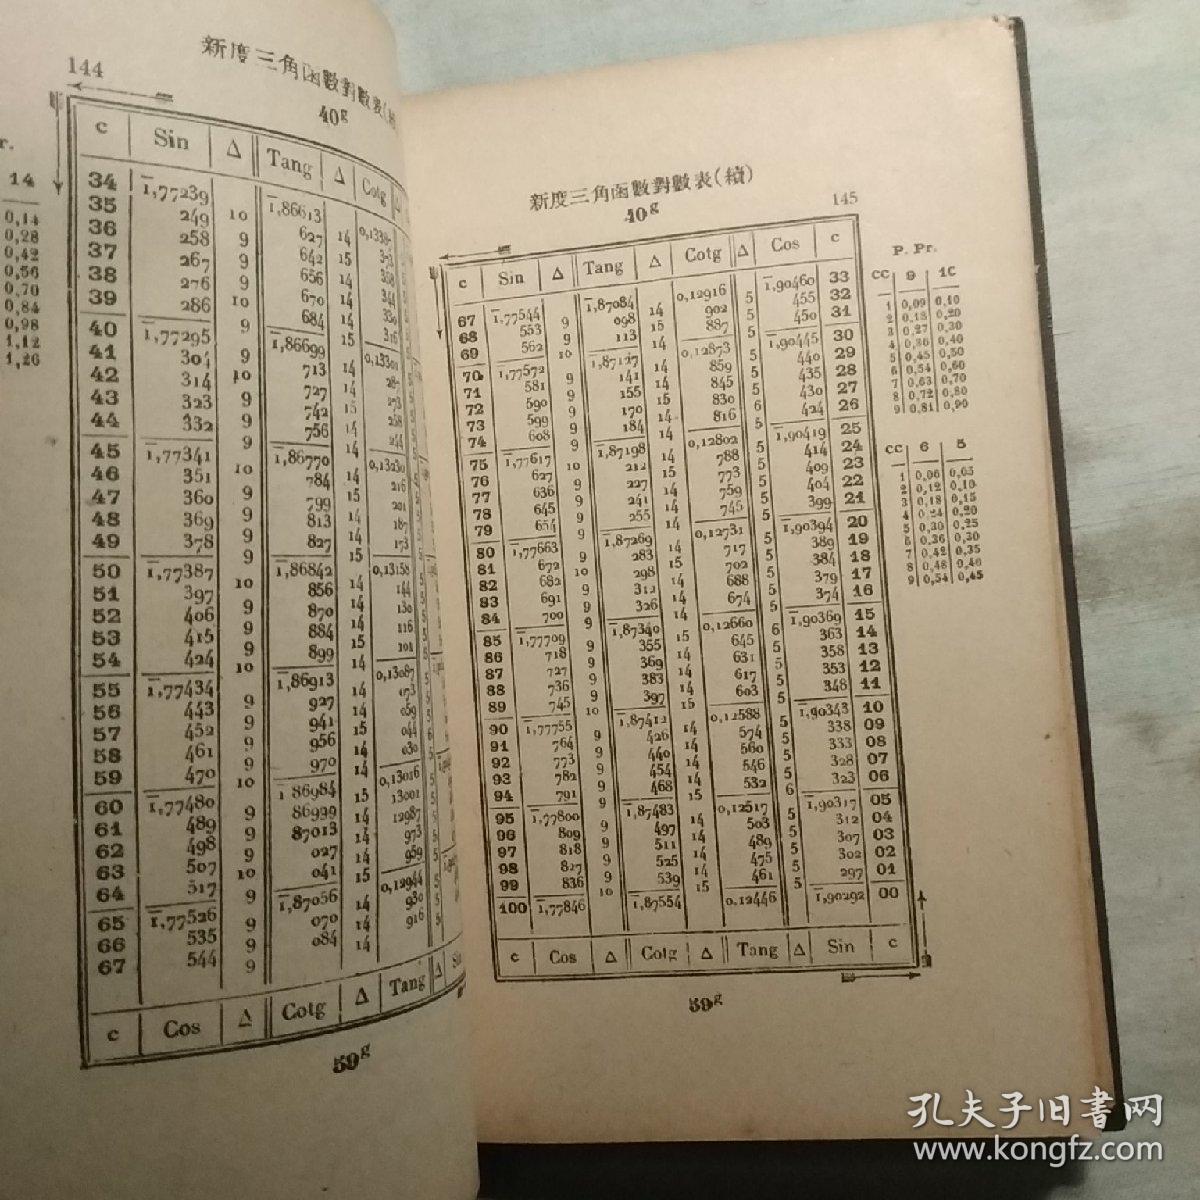 144
新度三角函數對數表(續)
40g
c Sin Δ Tang Δ Cotg Δ
34 1,77239 1,86613
35 249 10 627 14
36 258 9 642 15
37 267 9 656 14
38 276 9 670 14
39 286 10 684 14
40 1,77295 9 1,86699 15 0,13301
41 304 9 713 14
42 314 10 727 14
43 323 9 742 15
44 332 9 756 14
45 1,77341 9 1,86770 14 0,13230
46 351 10 784 14 216
47 360 9 799 15 201
48 369 9 813 14 187
49 378 9 827 14 173
50 1,77387 9 1,86842 15 0,13158
51 397 10 856 14 144
52 406 9 870 14 130
53 415 9 884 14 116
54 424 9 899 15 101
55 1,77434 10 1,86913 14 0,13087
56 443 9 927 14 073
57 452 9 941 14 059
58 461 9 956 15 044
59 470 9 970 14 030
60 1,77480 10 1,86984 14 0,13016
61 489 9 86999 15 13001
62 498 9 87013 14 12987
63 507 9 027 14 973
64 517 10 041 14 959
65 1,77526 9 1,87056 15 0,12944
66 535 9 070 14 930
67 544 9 084 14 916
c Cos Δ Cotg Δ Tang Δ Sin
59g
r.
14
0,14
0,28
0,42
0,56
0,70
0,84
0,98
1,12
1,26
新度三角函數對數表(續)
40g
145
c Sin Δ Tang Δ Cotg Δ Cos c
67 1,77544 1,87084 0,12916 1,90460 33
68 553 9 098 14 902 5 455 32
69 562 9 113 15 887 5 450 31
70 1,77572 10 1,87127 14 0,12873 5 1,90445 30
71 581 9 141 14 859 5 440 29
72 590 9 155 14 845 5 435 28
73 599 9 170 15 830 5 430 27
74 608 9 184 14 816 6 424 26
75 1,77617 9 1,87198 14 0,12802 5 1,90419 25
76 627 10 212 14 788 5 414 24
77 636 9 227 15 773 5 409 23
78 645 9 241 14 759 5 404 22
79 654 9 255 14 745 5 399 21
80 1,77663 9 1,87269 14 0,12731 5 1,90394 20
81 672 9 283 14 717 5 389 19
82 682 10 298 15 702 5 384 18
83 691 9 312 14 688 5 379 17
84 700 9 326 14 674 5 374 16
85 1,77709 9 1,87340 14 0,12660 5 1,90369 15
86 718 9 355 15 645 6 363 14
87 727 9 369 14 631 5 358 13
88 736 9 383 14 617 5 353 12
89 745 9 397 14 603 5 348 11
90 1,77755 10 1,87412 15 0,12588 5 1,90343 10
91 764 9 426 14 574 5 338 09
92 773 9 440 14 560 5 333 08
93 782 9 454 14 546 5 328 07
94 791 9 468 14 532 5 323 06
95 1,77800 9 1,87483 15 0,12517 6 1,90317 05
96 809 9 497 14 503 5 312 04
97 818 9 511 14 489 5 307 03
98 827 9 525 14 475 5 302 02
99 836 9 539 14 461 5 297 01
100 1,77846 10 1,87554 15 0,12446 5 1,90292 00
c Cos Δ Cotg Δ Tang Δ Sin c
59g
P. Pr.
cc 9 10
1 0,09 0,10
2 0,18 0,20
3 0,27 0,30
4 0,36 0,40
5 0,45 0,50
6 0,54 0,60
7 0,63 0,70
8 0,72 0,80
9 0,81 0,90
cc 6 5
1 0,06 0,05
2 0,12 0,10
3 0,18 0,15
4 0,24 0,20
5 0,30 0,25
6 0,36 0,30
7 0,42 0,35
8 0,48 0,40
9 0,54 0,45
孔夫子旧书网
www.kongfz.com